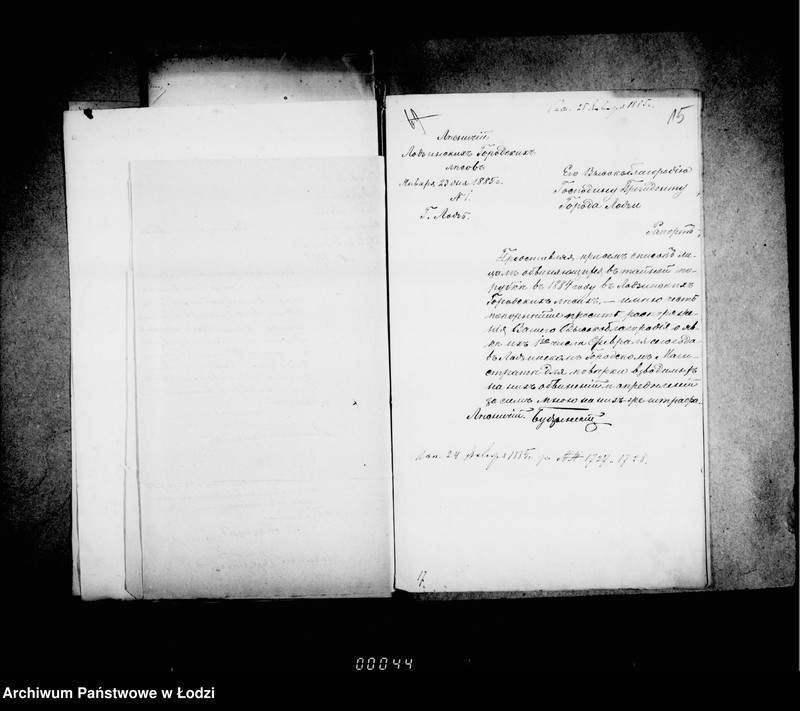 25 Января 1885 г.
15
Лѣсничій
Лодзинскихъ Городскихъ
лѣсовъ
Января 23 дня 1885 г.
№ 1.
Г. Лодзь.
Его Высокоблагородію
Господину Президенту
Города Лодзи
Рапортъ,
Представляя при семъ списокъ ли-
цамъ обвиняющимся въ тайной по-
рубкѣ въ 1884 году въ Лодзинскихъ
Городскихъ лѣсахъ, — имѣю честь
покорнѣйше просить распоряже-
нія Вашего Высокоблагородія о яв-
кѣ ихъ 1го числа Февраля сего года
въ Лодзинскомъ Городскомъ Маги-
стратѣ для повѣрки взводимыхъ
на нихъ обвиненій и опредѣленій
за симъ мною на нихъ штрафа.
Лѣсничій
24 Января 1885 г. за №№ 1727-1728.
00044
Archiwum Państwowe w Łodzi